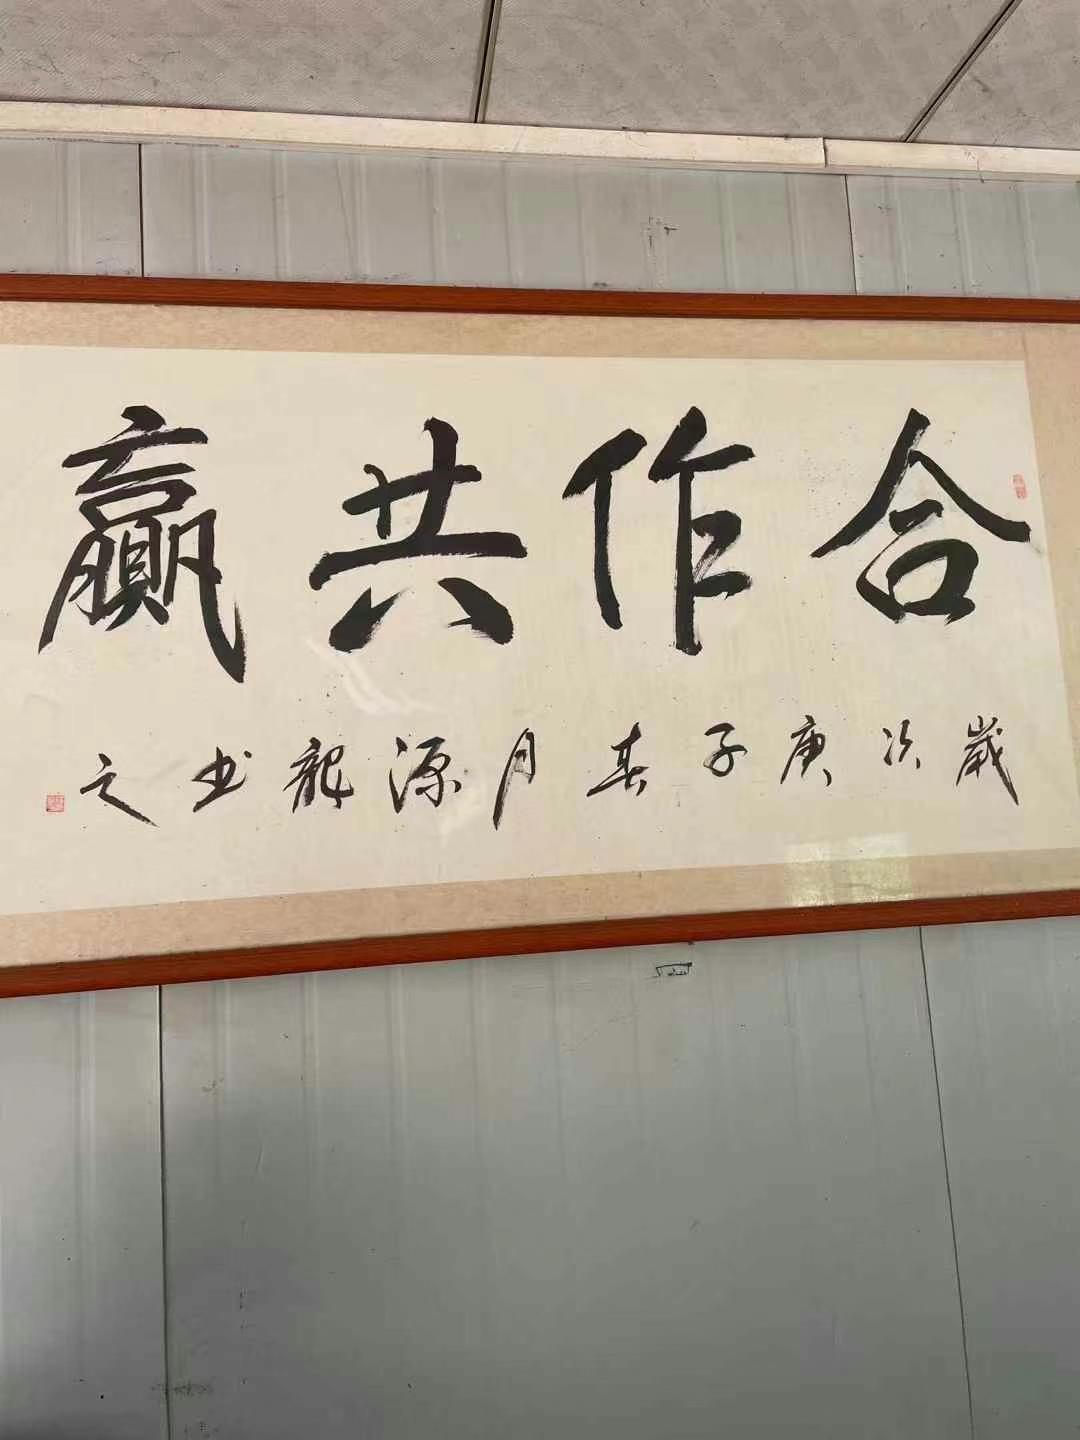 合作共贏
歲次庚子春月源龍书之